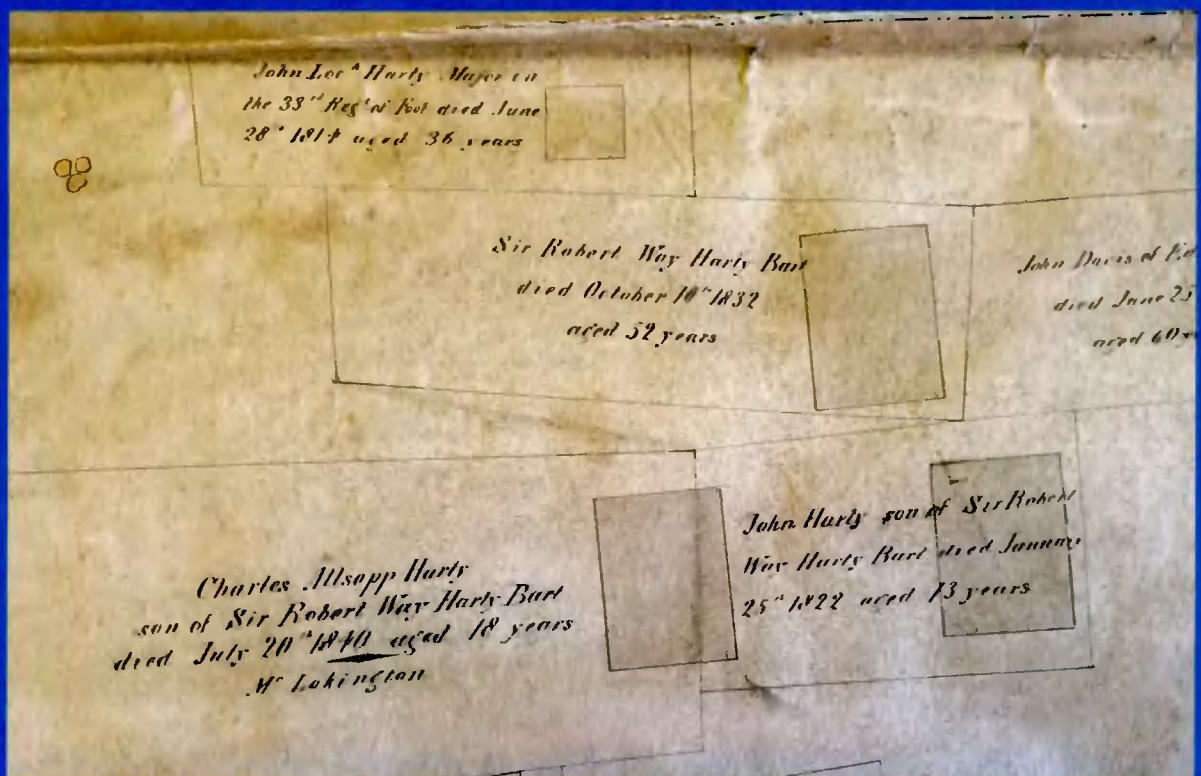 John Loc^k Harty Major in
the 33^rd Reg^t of Foot died June
28^th 1814 aged 36 years
Sir Robert Way Harty Bart
died October 10^th 1832
aged 52 years
John Davis of
died June 25
aged 60
Charles Allsopp Harty
son of Sir Robert Way Harty Bart
died July 20^th 1840 aged 18 years
M^r Lakington
John Harty son of Sir Robert
Way Harty Bart died January
25^th 1822 aged 13 years